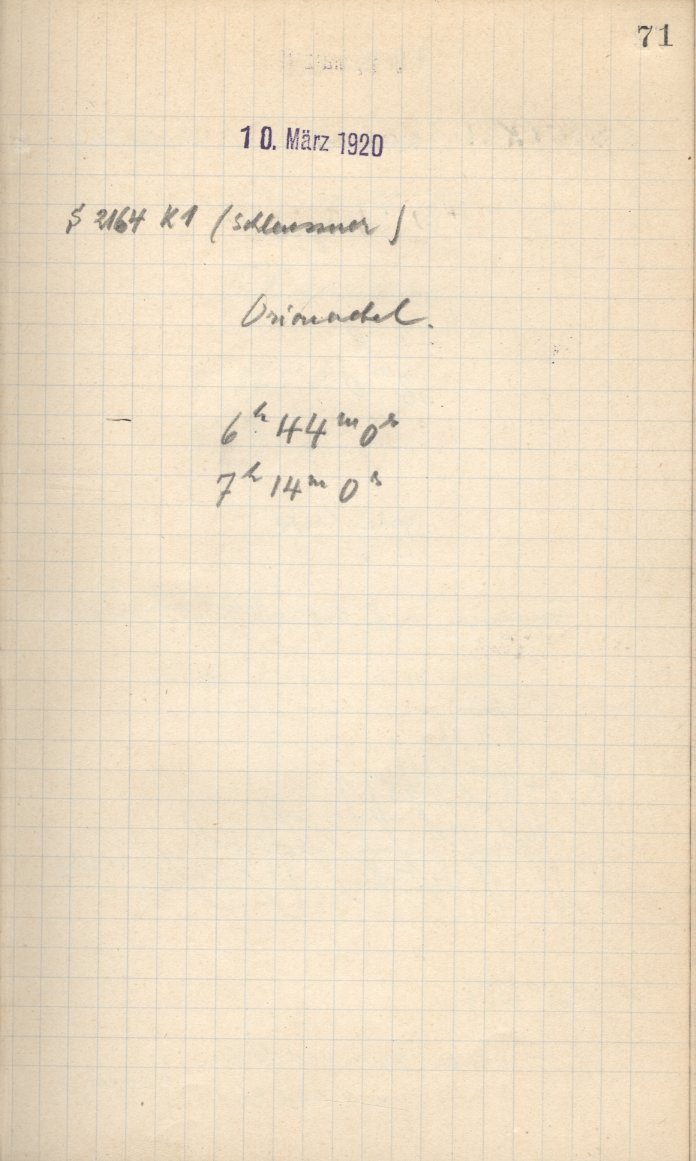 71
10. März 1920
S 2164 K1 (Schleussner)
Orionnebel.
— 6ʰ 44ᵐ 0ˢ
7ʰ 14ᵐ 0ˢ